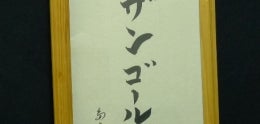 ザンゴール